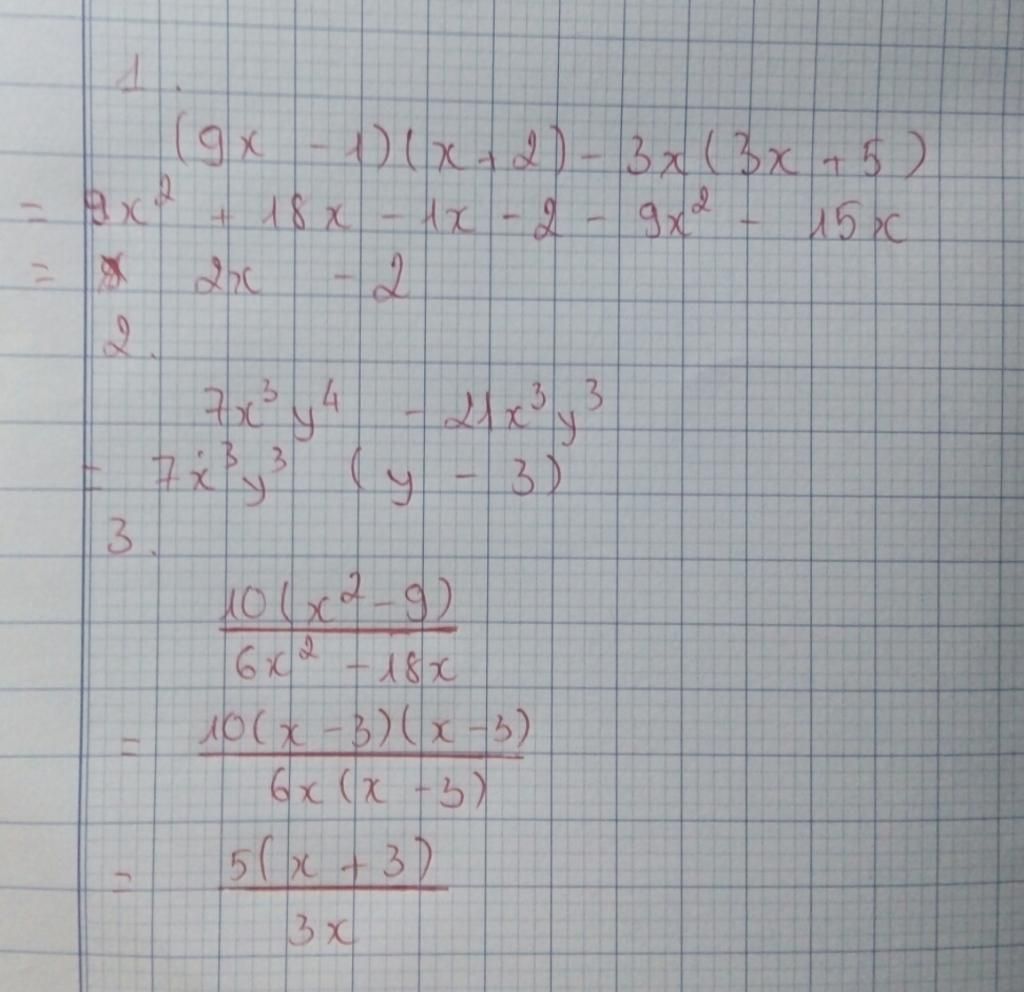 1.
(9x - 1)(x + 2) - 3x(3x + 5)
= 9x² + 18x - 1x - 2 - 9x² - 15x
= 2x - 2
2.
7x³y⁴ - 21x³y³
= 7x³y³ (y - 3)
3.
10(x² - 9)
6x² - 18x
= 10(x - 3)(x - 3)
6x(x - 3)
= 5(x + 3)
3x